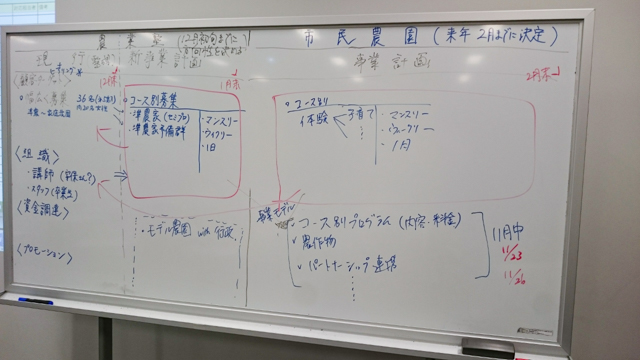 農業塾 (12月初旬までに
市民農園 (来年2月までに決定)
現行
新事業計画
事業計画
12月末
1月末
2月末
36名
・コース別募集
・準農家(セミプロ)
・準農家予備群
・マンスリー
・ウィクリー
・1日
・コース別
体験
子育て
・マンスリー
・ウィークリー
・1日
〈組織〉
・講師(卒業生?)
・スタッフ(卒業生)
〈資金調達〉
〈プロモーション〉
・モデル農園 with 行政
事業モデル
・コース別プログラム(内容・料金)
・農作物
・パートナーシップ連携
11月中
11/23
11/26